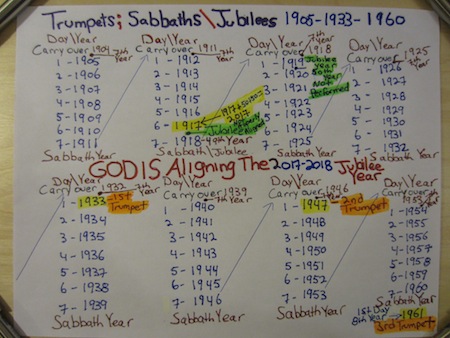 Trumpets; Sabbaths\Jubilees 1905-1933-1960
Day\Year
Carry over 1904 7th Year
1 - 1905
2 - 1906
3 - 1907
4 - 1908
5 - 1909
6 - 1910
7 - 1911
Sabbath Year
Day\Year
Carry over 1911 7th Year
1 - 1912
2 - 1913
3 - 1914
4 - 1915
5 - 1916
6 - 1917
7 - 1918 - 49th Year
Sabbath\Jubilee
2017
Jubilee
Day\Year
Carry over 1918
7th Year
1 - 1919
2 - 1920
3 - 1921
4 - 1922
5 - 1923
6 - 1924
7 - 1925
Sabbath Year
Jubilee
Year
50th
Year
Not
Performed
Day\Year
Carry over 1925
Year
1 - 1926
2 - 1927
3 - 1928
4 - 1929
5 - 1930
6 - 1931
7 - 1932
Sabbath Year
GOD IS Aligning The 2017-2018 Jubilee Year
Day\Year
Carry over 1932 - 7th Year
1 - 1933 - 1st Trumpet
2 - 1934
3 - 1935
4 - 1936
5 - 1937
6 - 1938
7 - 1939
Sabbath Year
Day\Year
Carry over 1939
7th Year
1 - 1940
2 - 1941
3 - 1942
4 - 1943
5 - 1944
6 - 1945
7 - 1946
Sabbath Year
Day\Year
Carry over 1946
7th Year
1 - 1947 2nd Trumpet
2 - 1948
3 - 1949
4 - 1950
5 - 1951
6 - 1952
7 - 1953
Sabbath Year
Day\Year
Carry over 1953
Year
1 - 1954
2 - 1955
3 - 1956
4 - 1957
5 - 1958
6 - 1959
7 - 1960
Sabbath Year
1st Day
8th Year
1961
3rd Trumpet